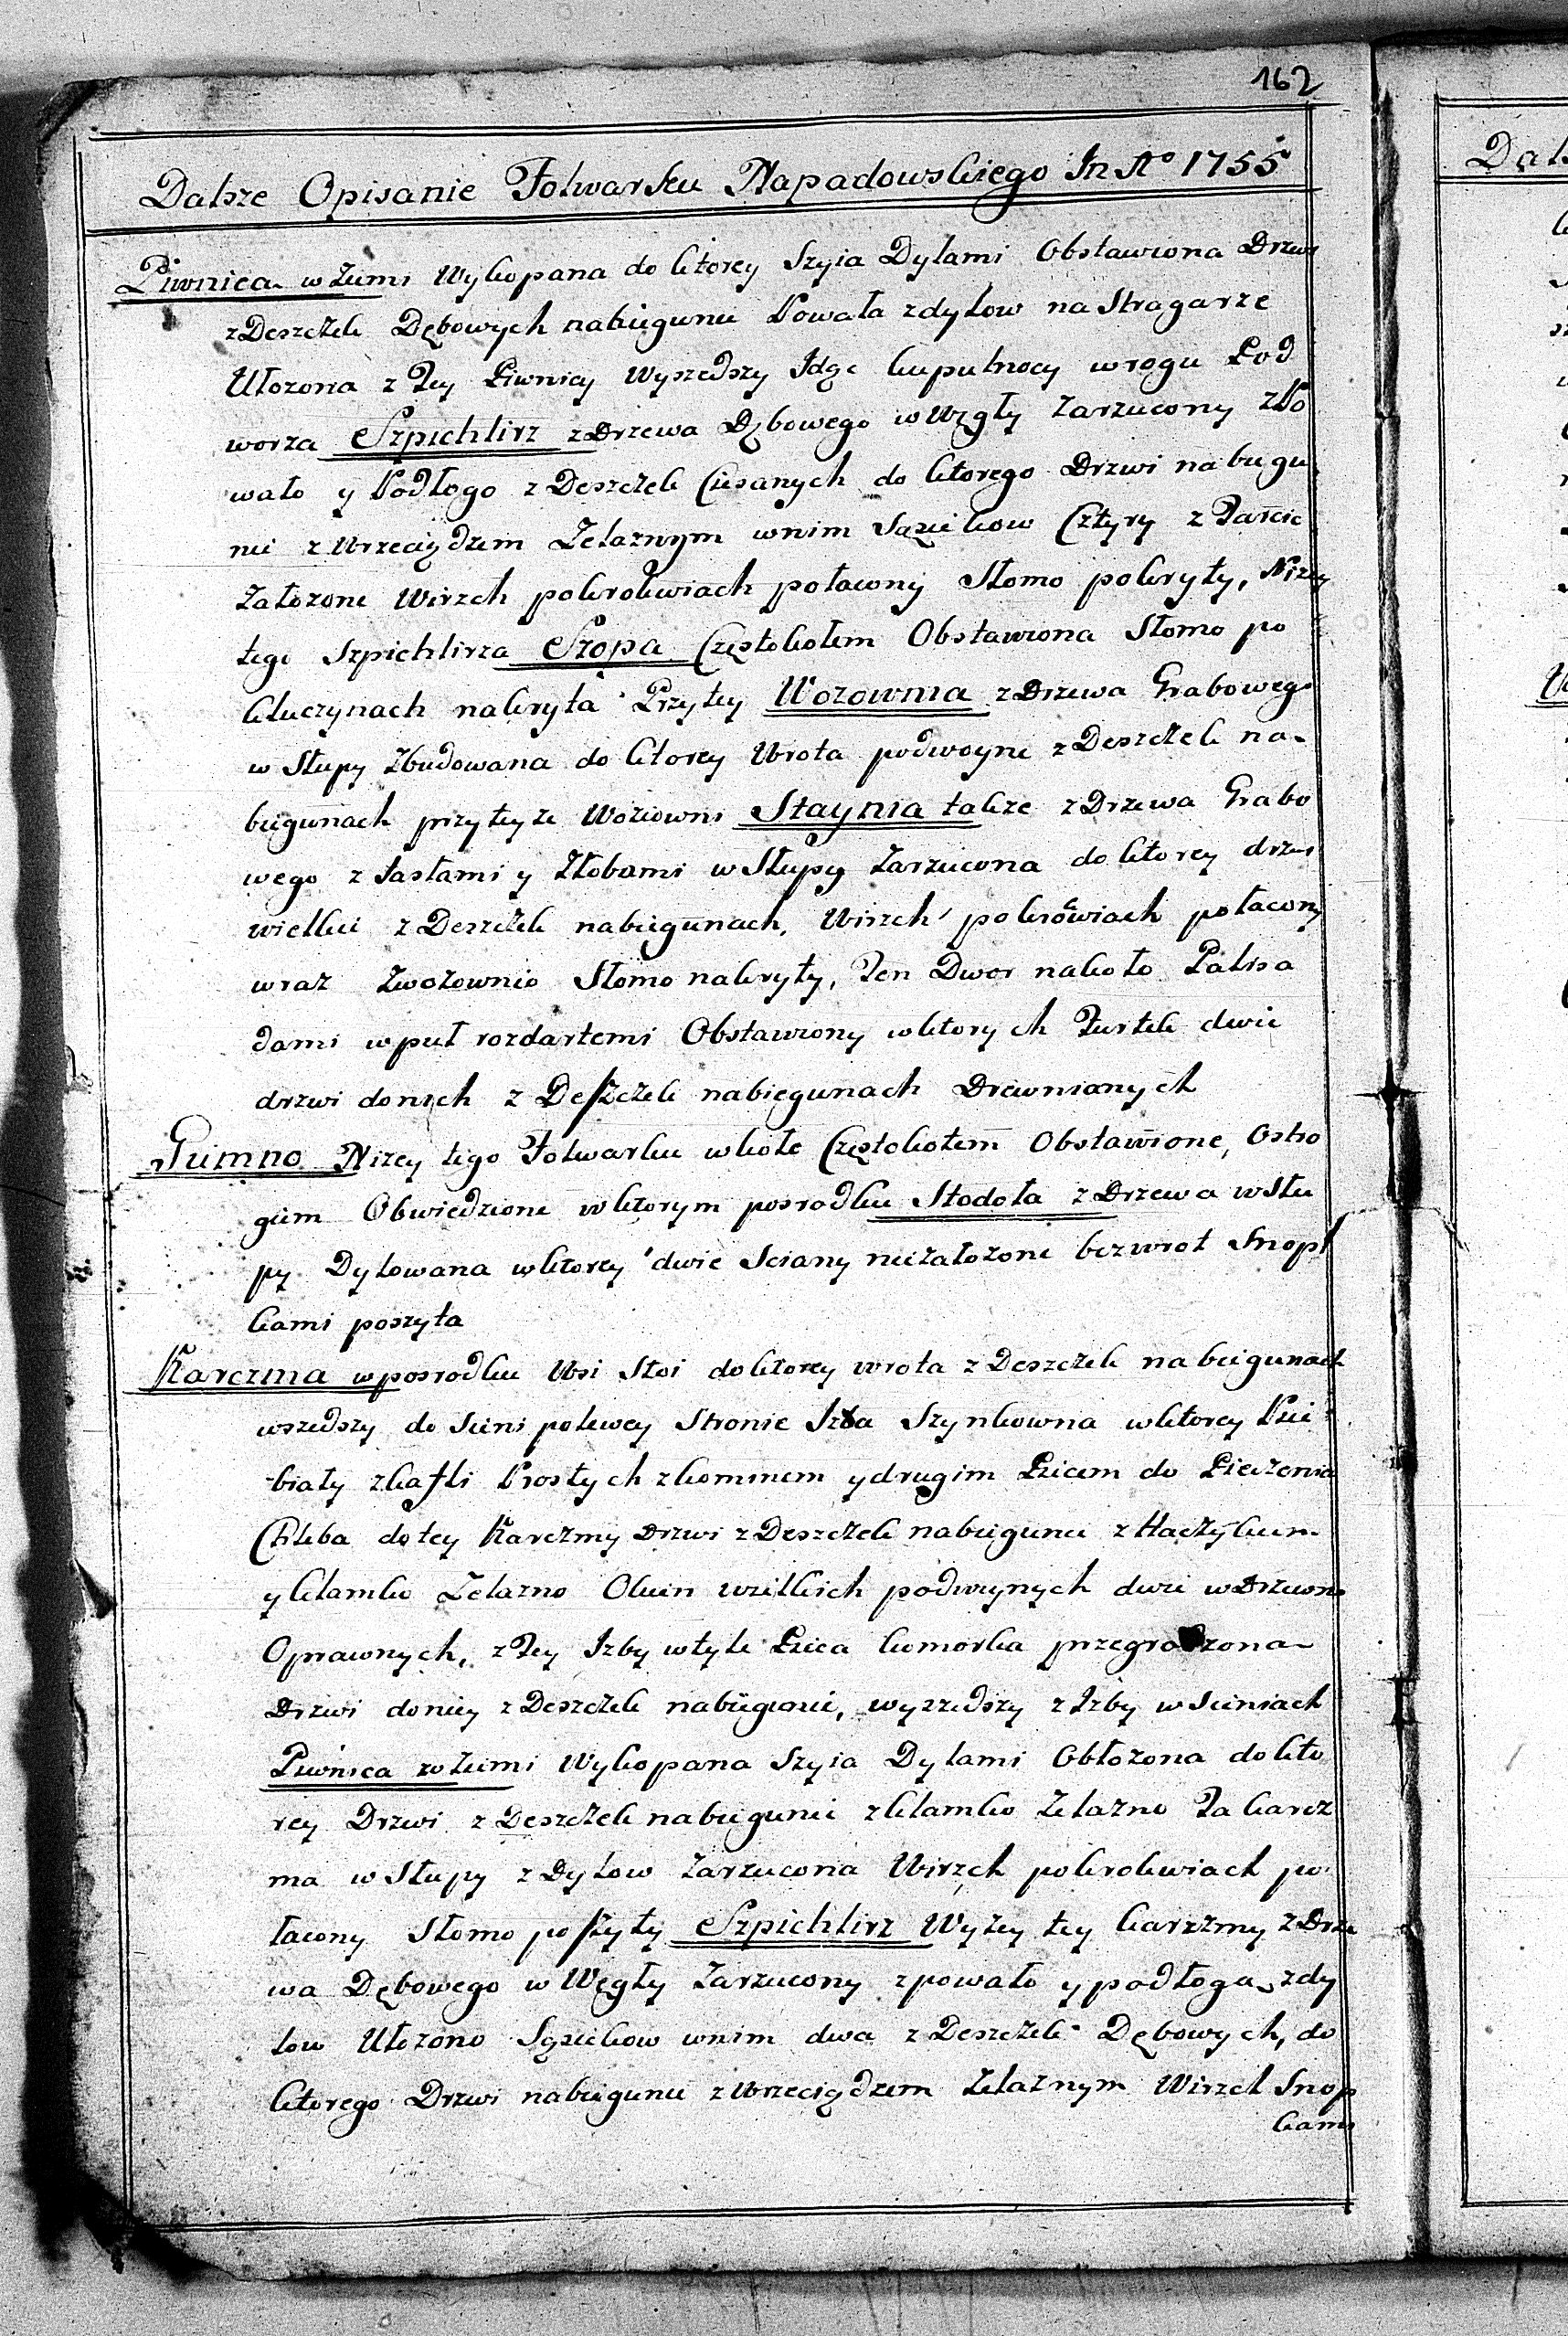 162
Dalsze Opisanie Folwarku Napadowskiego In Aº 1755
Piwnica w Ziemi Wykopana do ktorey Szyia Dylami Obstawiona Drzwi
z Desczek Dębowych na biegunie Powała z dylow na Stragarze
Ułozona z Tey Piwnicy Wyszedszy Idąc ku pułnocy w rogu Pod
worza Szpichlirz z Drzewa Dębowego w Węgły Zarzucony z Po
wało y Podłogo z Desczek Ciesanych do ktorego Drzwi na biegu
nie z Wrzeciądzem Zelaznym w nim Sąsiekow Cztyry z Tarcic
Założone Wirzch po krokwiach połacony Słomo pokryty, Nizey
tego Szpichlirza Szopa Częstokołem Obstawiona Słomo po
kluczynach nakryta Przy tey Wozownia z Drzewa Grabowego
w Słupy Zbudowana do ktorey Wrota podwoyne z Desczek na
biegunach przy teyze Woziowni Staynia takze z Drzewa Grabo
wego z Jasłami y Złobami w Słupy Zarzucona do ktorey drzwi
wielkie z Desczek na biegunach, Wirzch po krowiach połacony
wraz Zwozownio Słomo nakryty, Ten Dwor nakoło Palisa
dami w puł rozdartemi Obstawiony w ktorych Furtek dwie
drzwi do nich z Desczek na biegunach Drewnianych
Gumno Nizey tego Folwarku w koło Częstokołem Obstawione, Ostro
giem Obwiedzione w ktorym posrodku Stodoła z Drzewa w Słu
py Dylowana w ktorey dwie Sciany nie założone bez wrot Snop
kami poszyta
Karczma w posrodku Wsi Stoi do ktorey wrota z Desczek na biegunach
wszedszy do Sieni po lewey Stronie Izba Szynkowna w ktorey Piec
biały z kafli Prostych z kominem y drugim Piecem do Pieczenia
Chleba do tey Karczmy Drzwi z Desczek na biegunie z Haczykiem
y klamko Zelazno Okien wielkich podwynych dwie w Drzewno
Oprawnych, z Tey Izby w tyle Pieca komorka przegrodzona
Drzwi do niey z Desczek na biegunie, wyszedszy z Izby w Sieniach
Piwnica w Ziemi Wykopana Szyia Dylami Obłozona do kto
rey Drzwi z Desczek na biegunie z klamko Zelazno Ta karcz
ma w Słupy z Dylow Zarzucona Wirzch po krokwiach po
łacony Słomo poszyty Szpichlirz Wyzey tey karczmy z Drze
wa Dębowego w Węgły Zarzucony z powało y podłoga z dy
low Ułozono Sąsiekow w nim dwa z Desczek Dębowych, do
ktorego Drzwi na biegunie z Wrzeciądzem Zelaznym Wirzch Snop
kami